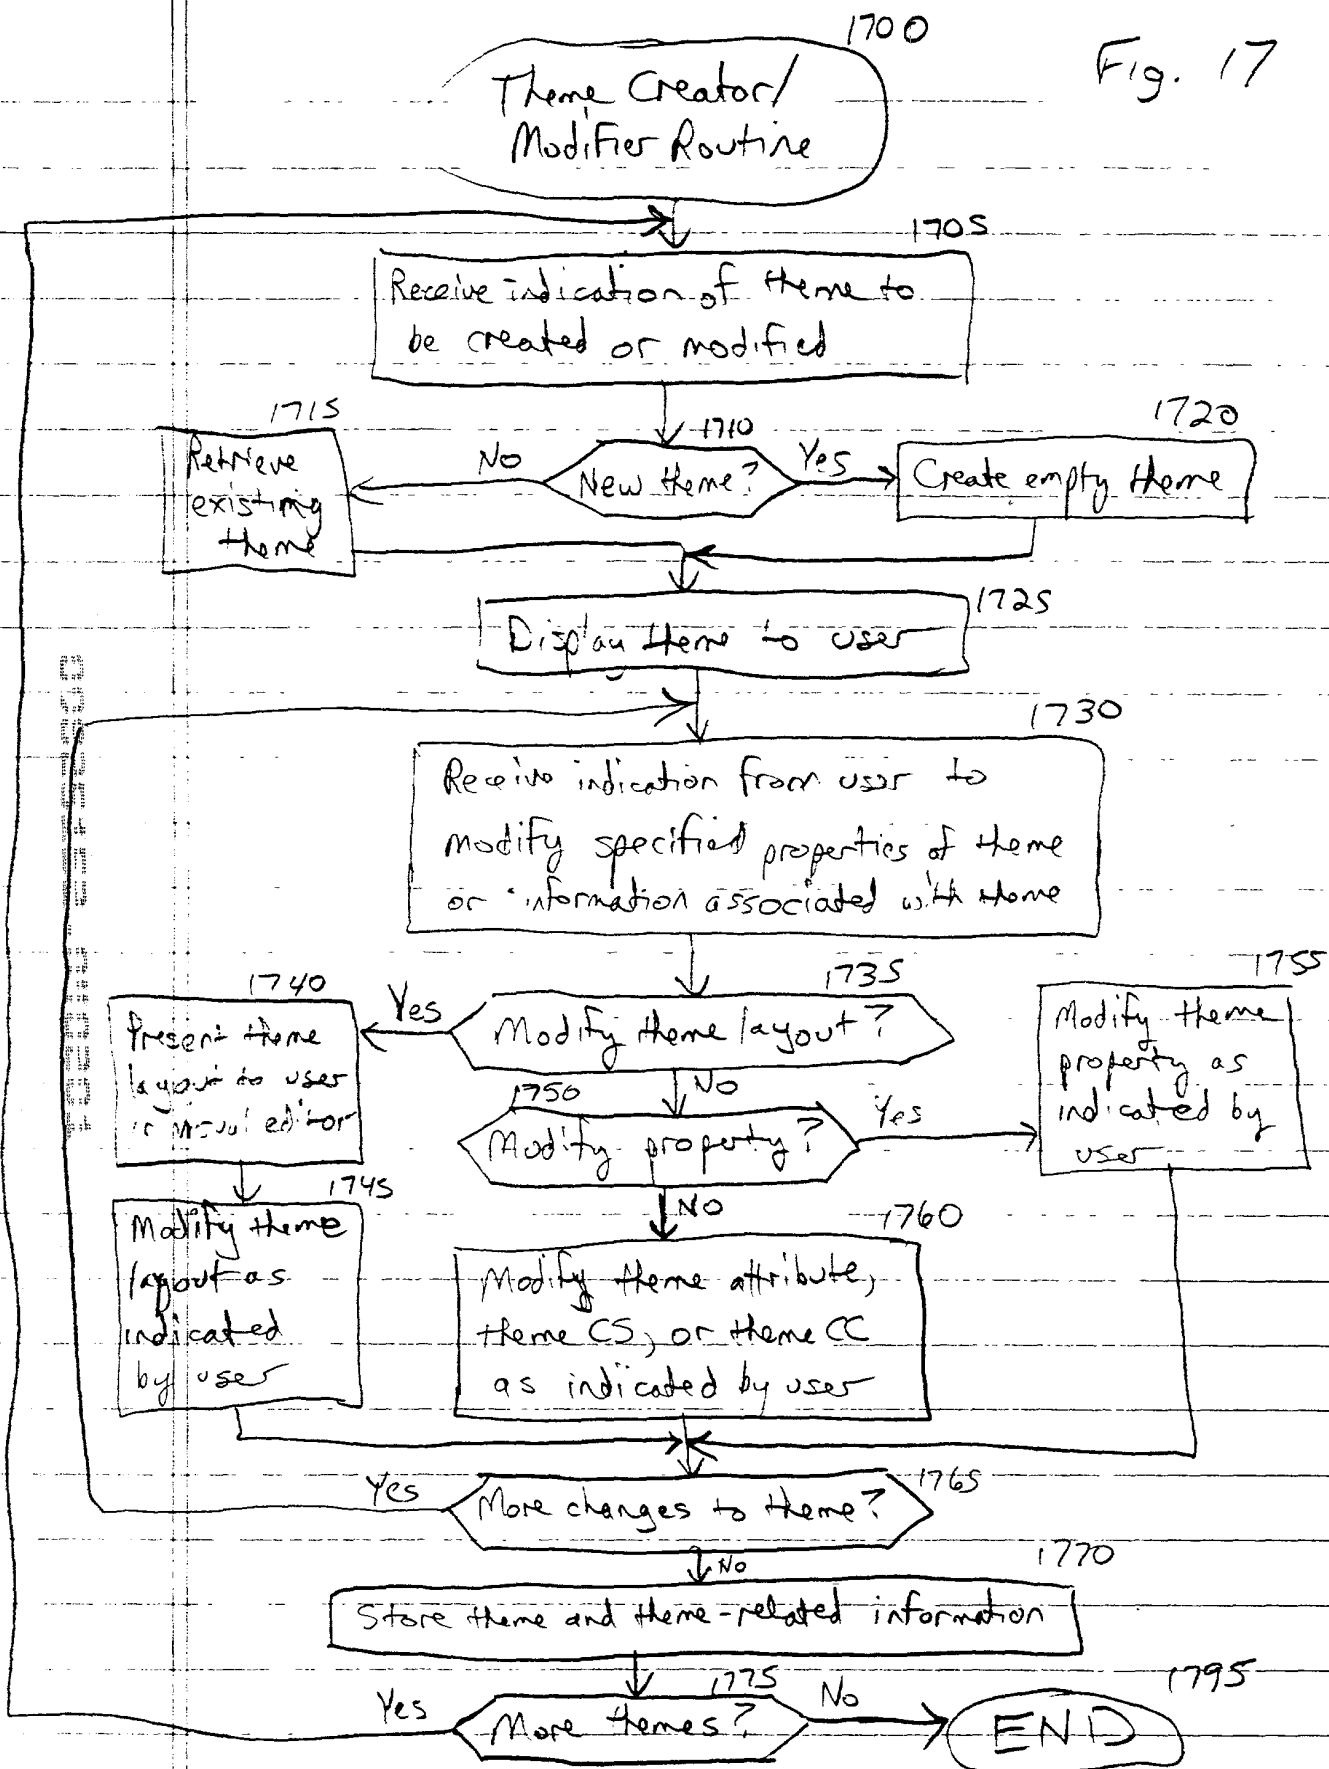 1700
Fig. 17
Theme Creator/
Modifier Routine
1705
Receive indication of theme to
be created or modified
1715
1710
1720
Retrieve
existing
theme
No
New theme?
Yes
Create empty theme
1725
Display theme to user
1730
Receive indication from user to
modify specified properties of theme
or information associated with theme
1740
1735
1755
Present theme
layout to user
in visual editor
Yes
Modify theme layout?
No
Modify theme
property as
indicated by
user
1750
Modify property?
Yes
No
1745
Modify theme
layout as
indicated
by user
1760
Modify theme attribute,
theme CS, or theme CC
as indicated by user
1765
Yes
More changes to theme?
No
1770
Store theme and theme-related information
1775
1795
Yes
More themes?
No
END